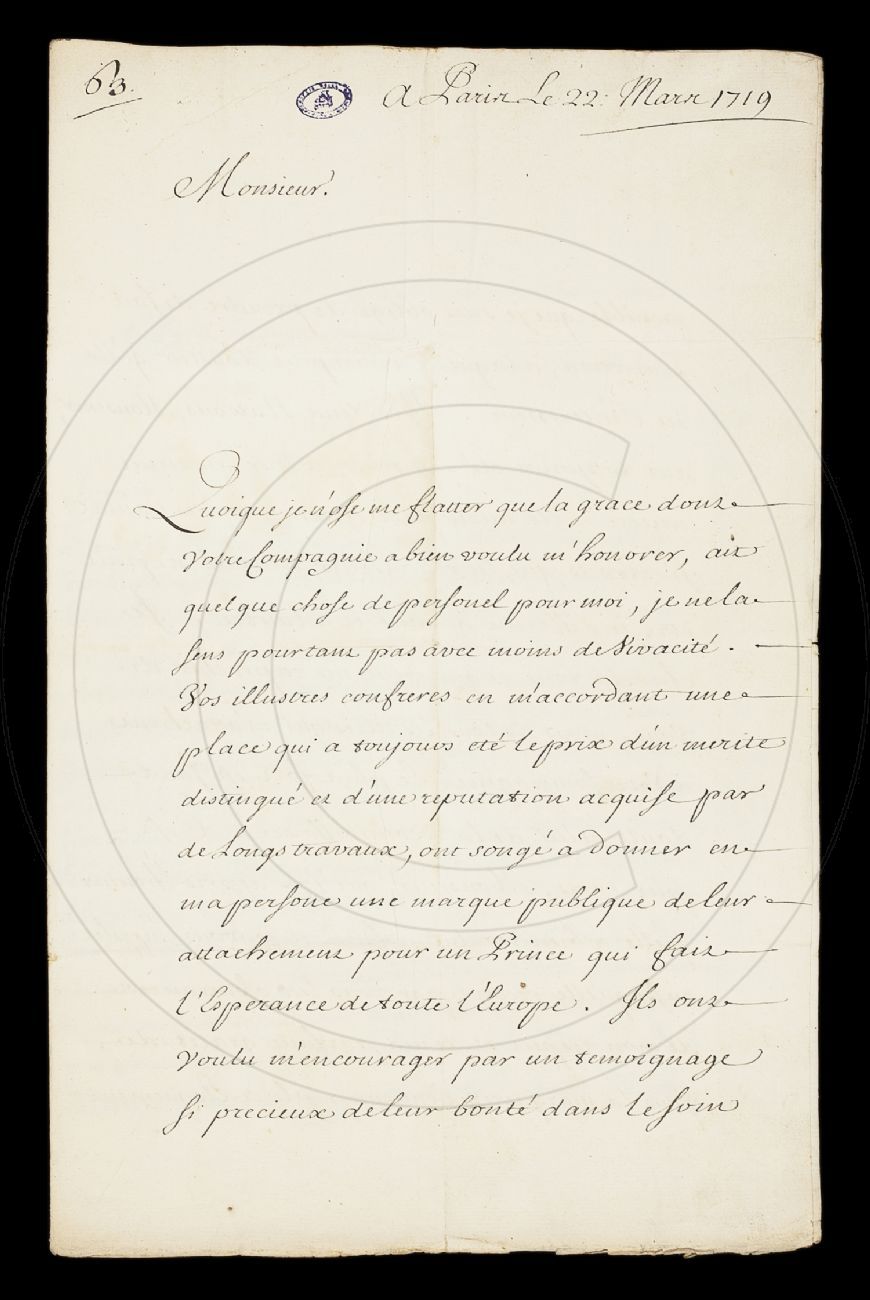 63.
A Paris Le 22. Mars 1719
Monsieur.
Quoique je n'ose me flatter que la grace dont
Votre Compagnie a bien voulu m'honorer, ait
quelque chose de personel pour moi, je ne la
sens pourtant pas avec moins de Vivacité.
Vos illustres confreres en m'accordant une
place qui a toujours eté le prix d'un merite
distingué et d'une reputation acquise par
de Longs travaux, ont songé a donner en
ma persone une marque publique de leur
attachement pour un Prince qui fait
l'Esperance de toute l'Europe. Ils ont
voulu m'encourager par un temoignage
si precieux de leur bonté dans le soin